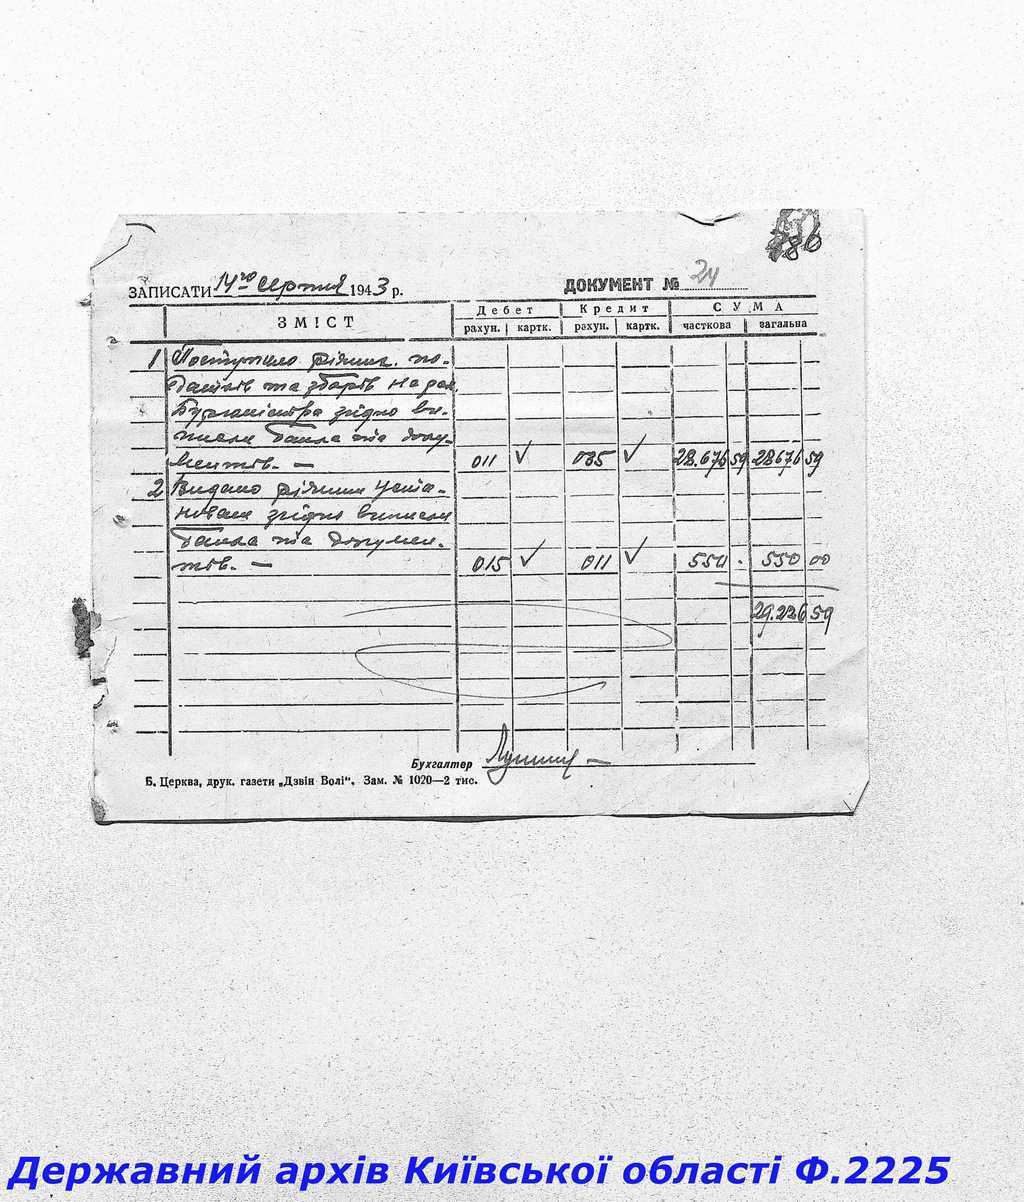 186
ЗАПИСАТИ 14го серпня 1943 р. ДОКУМЕНТ № 24
ЗМІСТ Дебет Кредит СУМА
рахун. картк. рахун. картк. часткова загальна
1 Поступило різних по-
датків та зборів на рах.
Бургмістра згідно ви-
писки банка та доку-
ментів. — 011 ✓ 035 ✓ 28.676 59 28676 59
2 Видано різним уста-
новам згідно виписки
банка та докумен-
тів. — 015 ✓ 011 ✓ 550 - 550 00
29.226 59
Бухгалтер
Б. Церква, друк. газети „Дзвін Волі“. Зам. № 1020—2 тис.
Державний архів Київської області Ф.2225